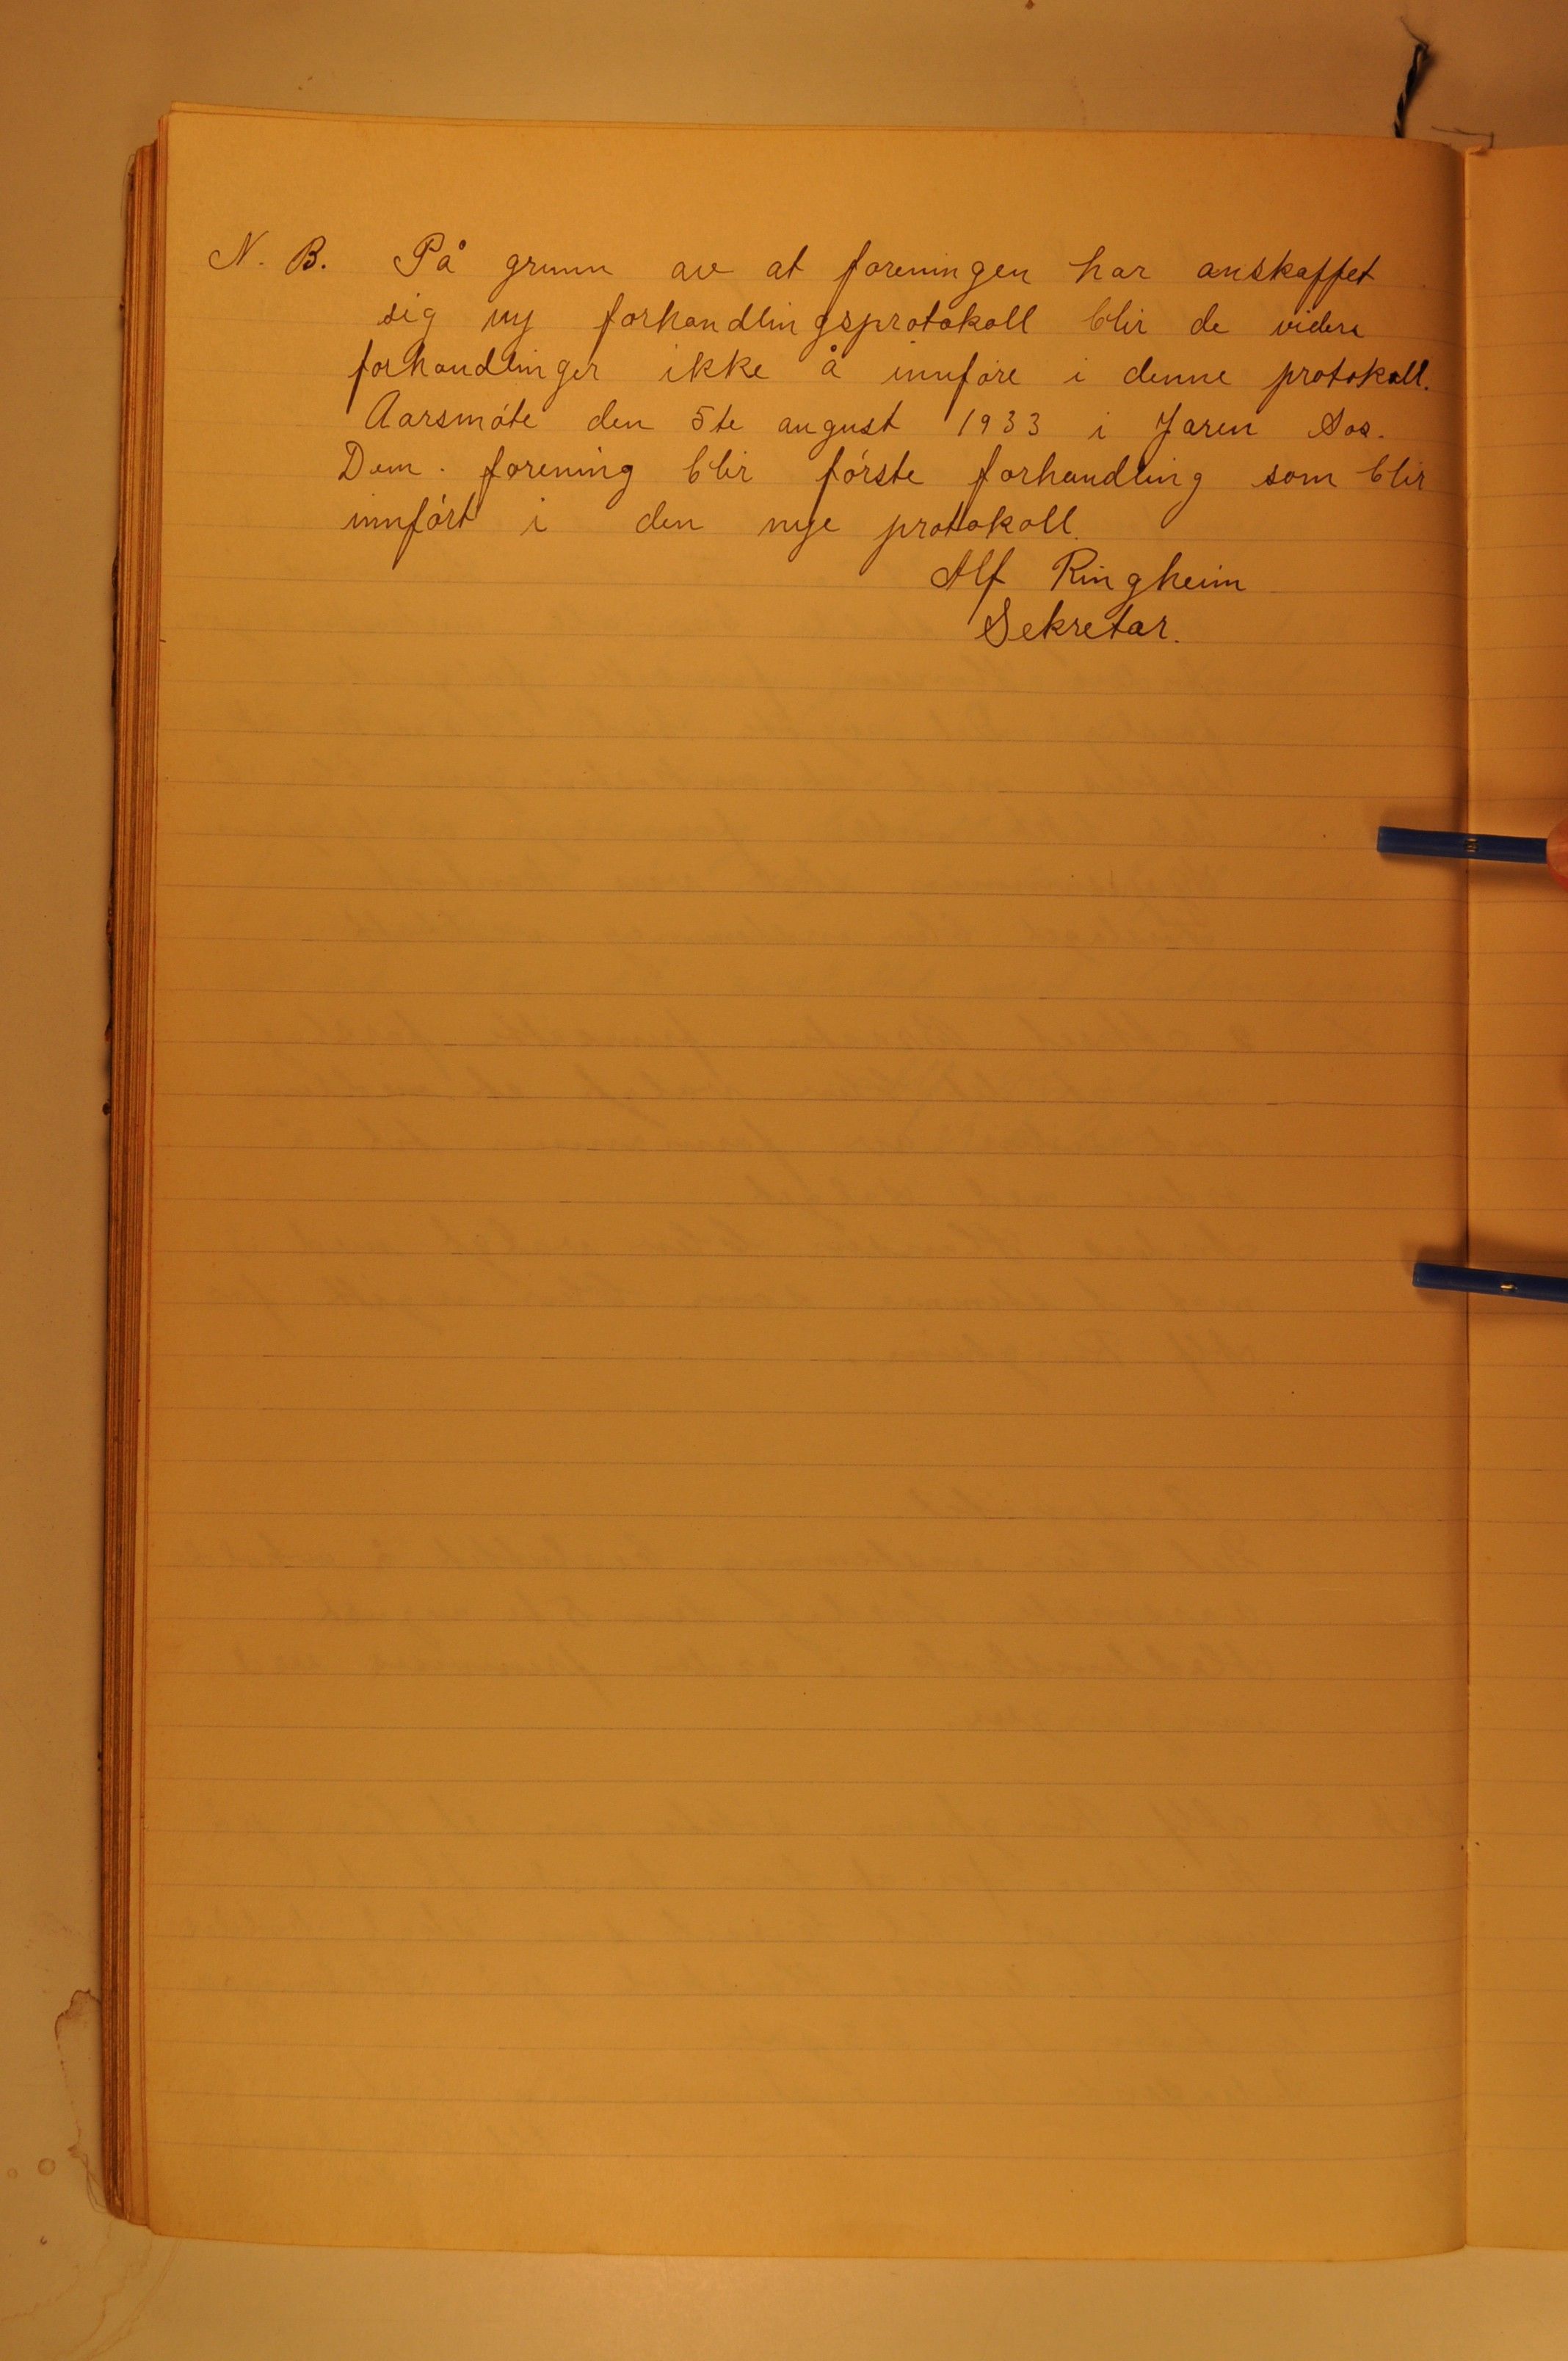 N. B. På grunn av at foreningen har anskaffet
sig ny forhandlingsprotokoll blir de videre
forhandlinger ikke å innføre i denne protokoll.
Aarsmóte den 5te august 1933 i Jaren Sos.
Dem. forening blir fórste forhandling som blir
innfórt i den nye protokoll.
Alf Ringheim
Sekretar.